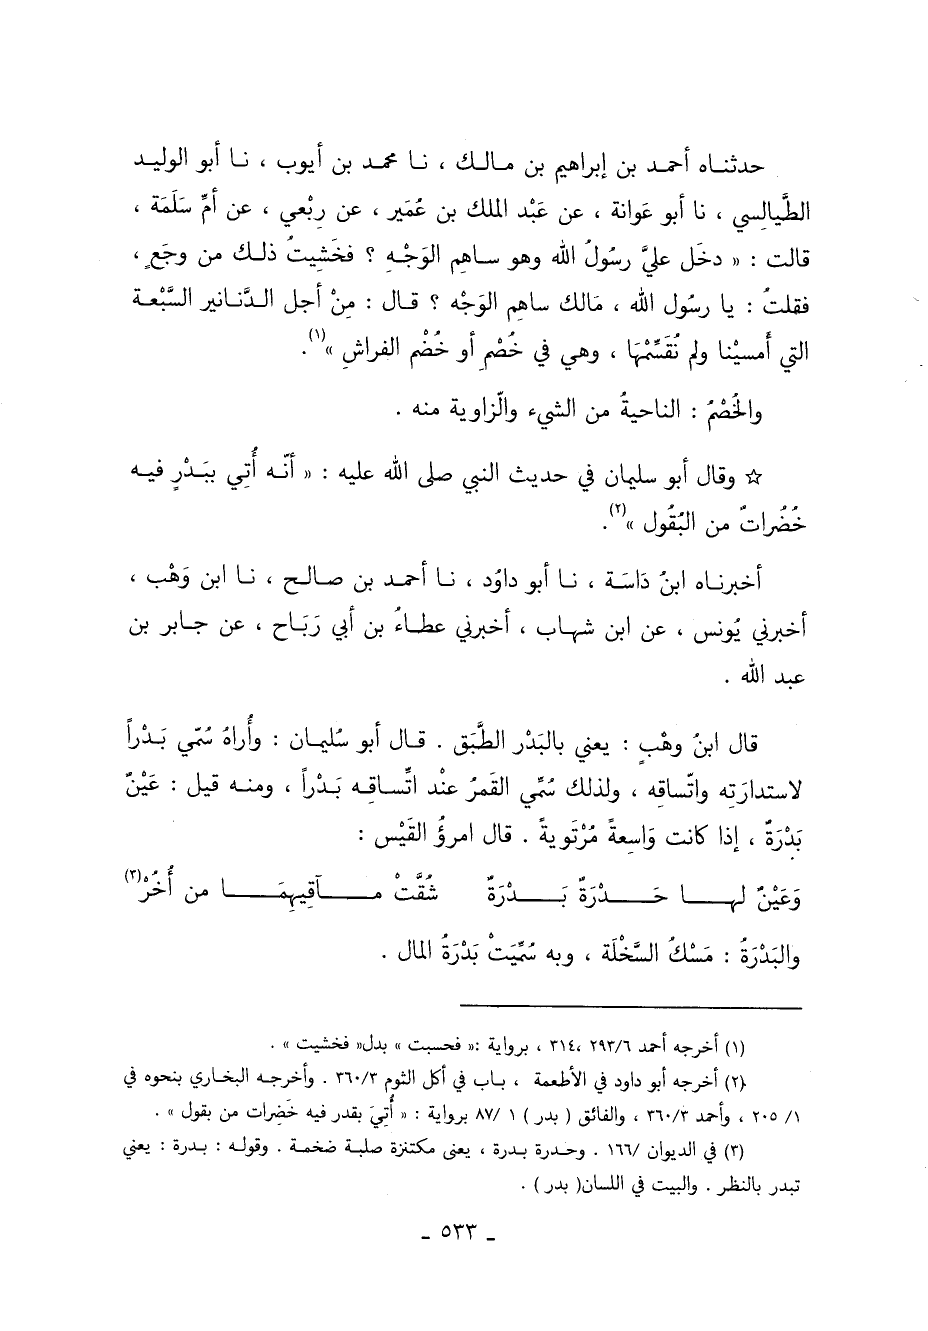 حدثناه أحمد بن إبراهيم بن مالك ، نا محمد بن أيوب ، نا أبو الوليد
الطَّيالسي ، نا أبو عَوانة ، عن عَبْد الملك بن عُمَير ، عن رِبْعي ، عن أمِّ سَلَمَة ،
قالت : « دخَل عليَّ رسُولُ الله وهو ساهم الوَجْه ؟ فخَشِيتُ ذلك من وجَعٍ ،
فقلتُ : يا رسُول الله ، مَالك ساهم الوَجْه ؟ قال : مِنْ أجل الدَّنانير السَّبْعة
التي أمسيْنا ولم نُقَسِّمْها ، وهي في خُصْم أو خُضْم الفراش »(١).
والخُصْمُ : الناحيةُ من الشيء والزاوية منه .
☆ وقال أبو سليمان في حديث النبي صلى الله عليه : « أنّه أُتي ببَدْرٍ فيه
خُضُراتٌ من البُقُول »(٢).
أخبرناه ابنُ دَاسَة ، نا أبو داوُد ، نا أحمد بن صالح ، نا ابن وَهْب ،
أخبرني يُونس ، عن ابن شهاب ، أخبرني عطاءُ بن أبي رَبَاح ، عن جابر بن
عبد الله .
قال ابنُ وهْبٍ : يعني بالبَدْر الطَّبَق . قال أبو سُليمان : وأُراهُ سُمّي بَدْراً
لاستدارَته واتّساقه ، ولذلك سُمِّي القمَرُ عنْد اتِّساقه بَدْراً ، ومنه قيل : عَيْنٌ
بَدْرَةٌ ، إذا كانت وَاسعةً مُرْتَوِيةً . قال امرؤُ القَيْس :
وَعَيْنٌ لها حَدْرَةٌ بَدْرَةٌ شُقَّتْ مآقيهمَا من أُخُرْ(٣)
والبَدْرَةُ : مَسْكُ السَّخْلَة ، وبه سُمِّيَتْ بَدْرَةُ المال .
(١) أخرجه أحمد ٢٩٣/٦ ،٣١٤ ، برواية :« فحسبت » بدل« فخشيت » .
(٢) أخرجه أبو داود في الأطعمة ، باب في أكل الثوم ٣٦٠/٣ . وأخرجه البخاري بنحوه في
١/ ٢٠٥ ، وأحمد ٣٦٠/٣ ، والفائق ( بدر ) ١ /٨٧ برواية : « أُتِيَ بقدر فيه خَضِرات من بقول » .
(٣) في الديوان /١٦٦ . وحدرة بدرة ، يعنى مكتنزة صلبة ضخمة . وقوله : بدرة : يعني
تبدر بالنظر . والبيت في اللسان( بدر ) .
ـ ٥٣٣ ـ